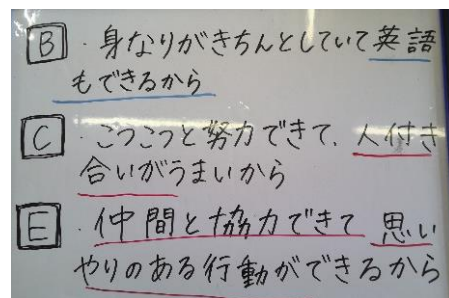 B ・身なりがきちんとしていて英語
もできるから
C ・こつこつと努力できて、人付き
合いがうまいから
E ・仲間と協力できて 思い
やりのある行動ができるから